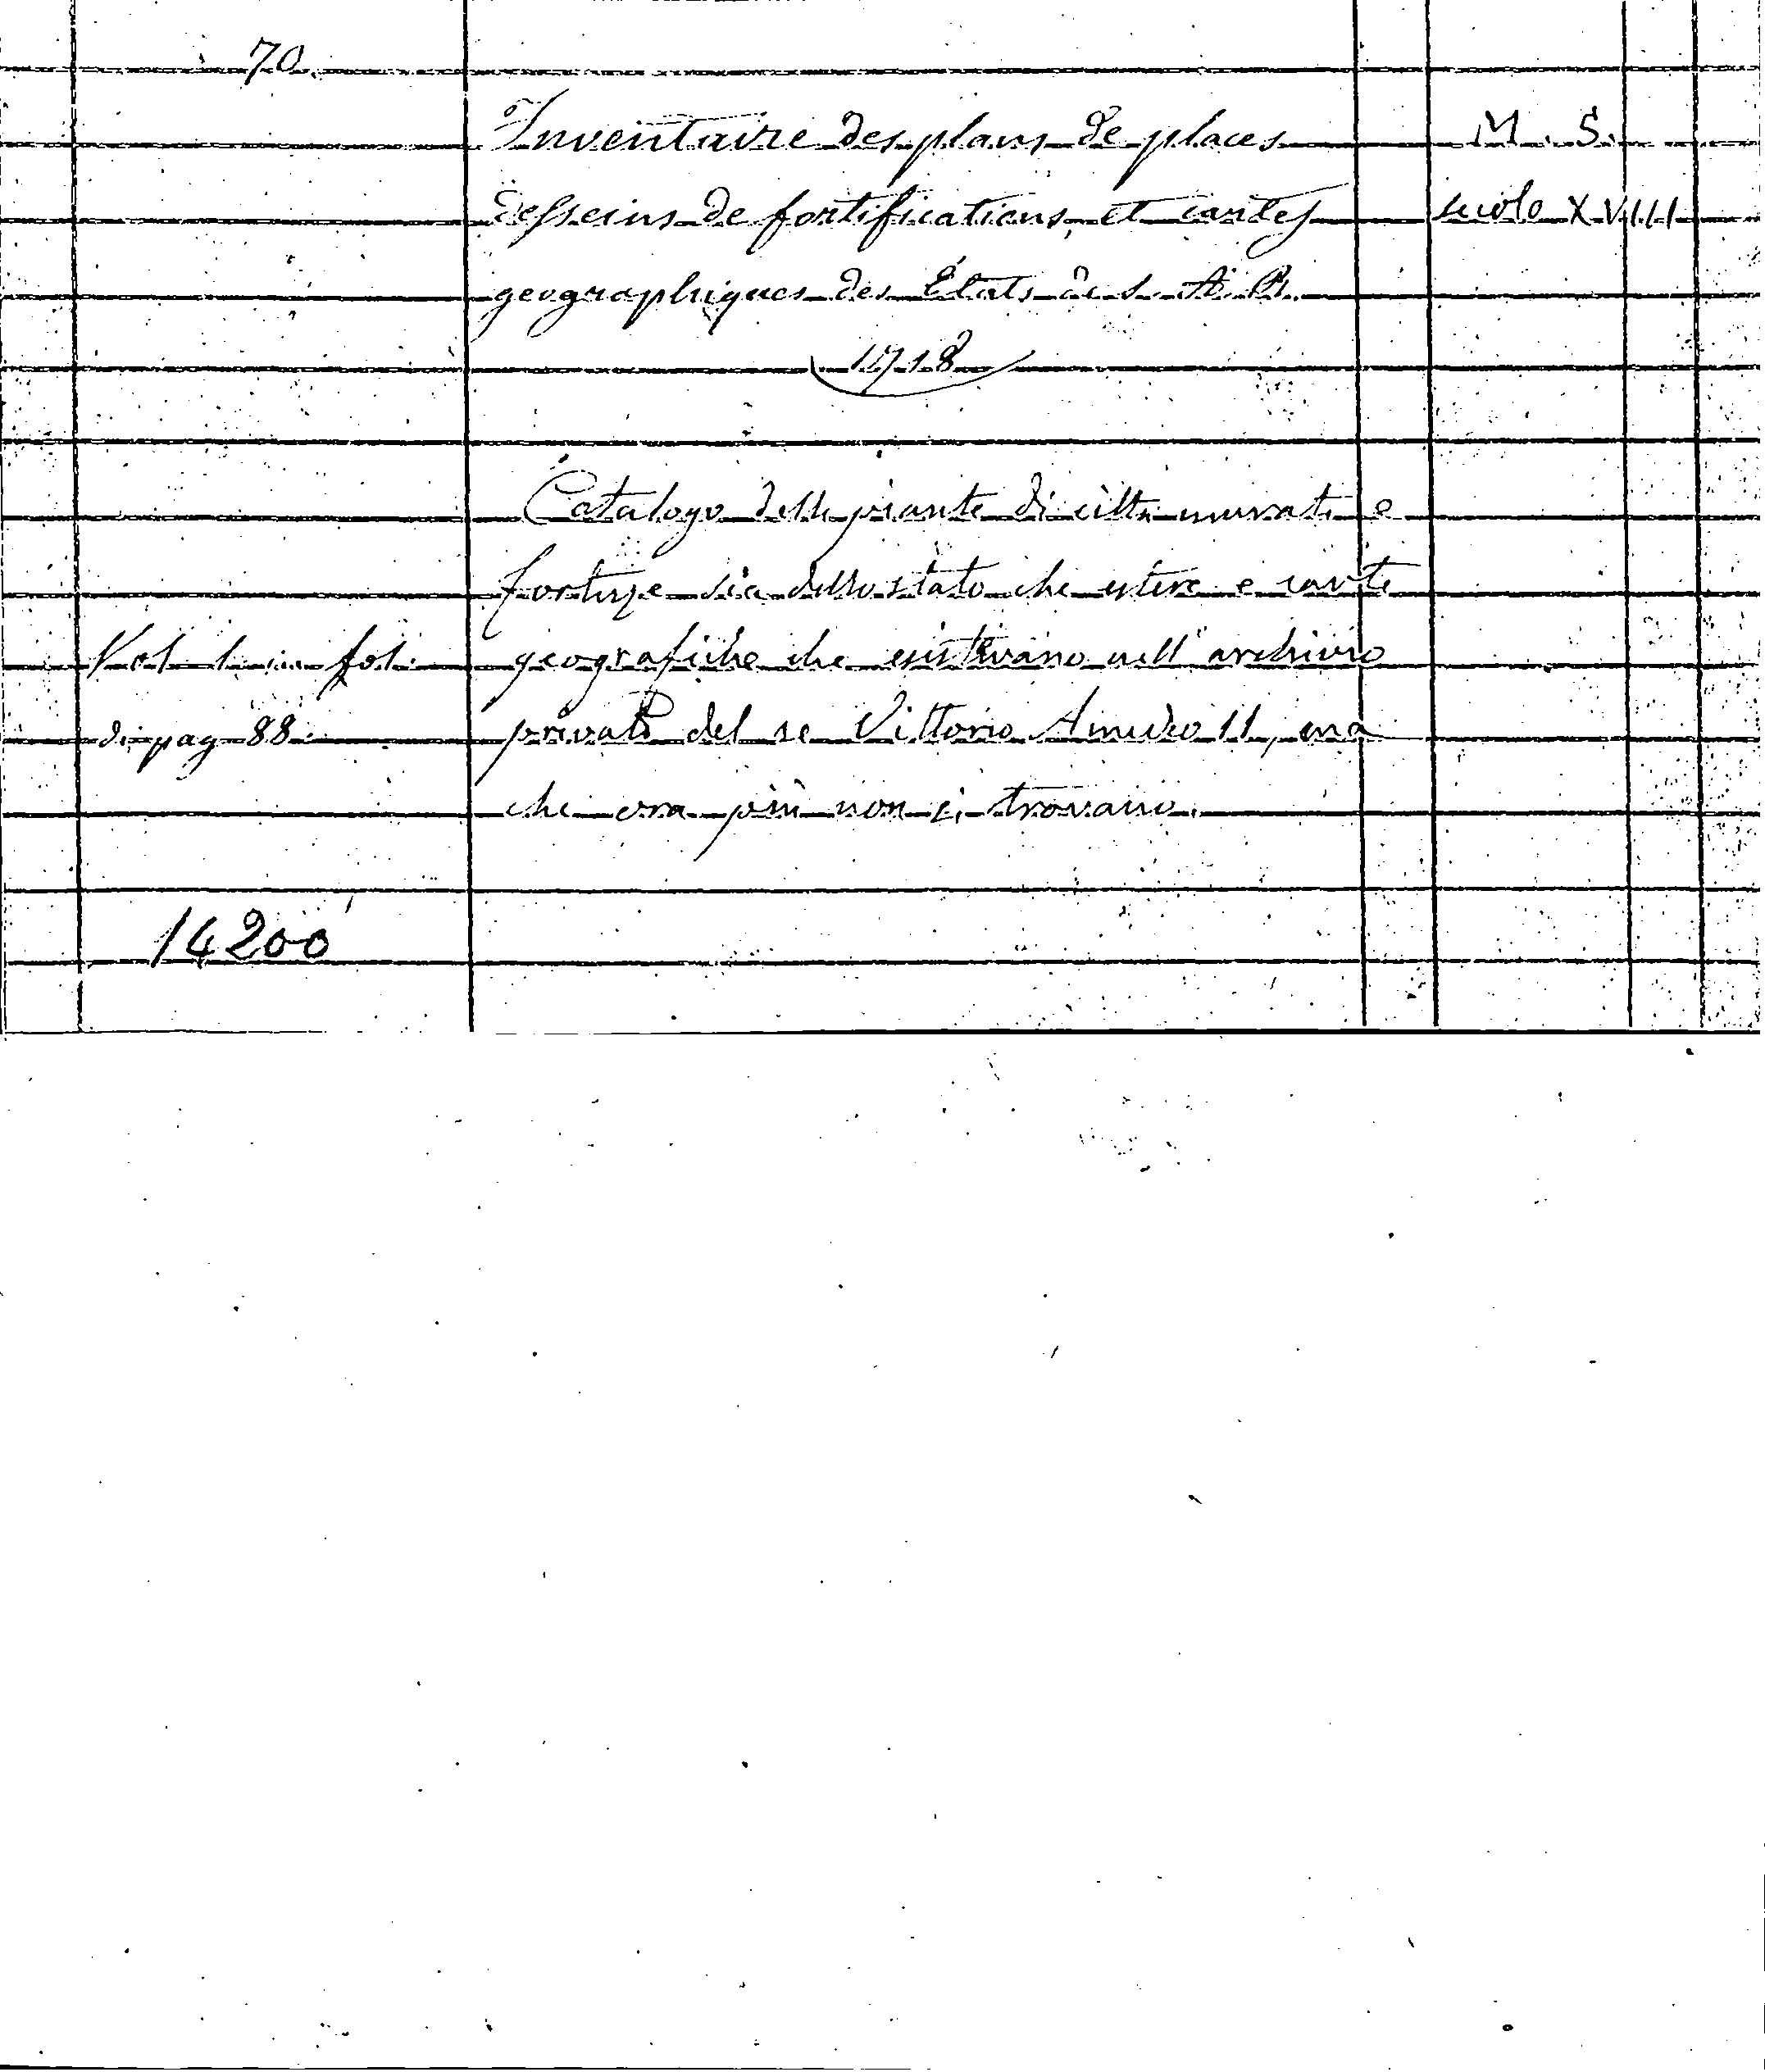 70.
Inventaire des plans de places M. S.
desseins de fortifications, et cartes secolo XVIII
geographiques des États de S. A. R.
1718
Catalogo delle piante di città murate e
fortezze sia dello stato che estere e carte
Vol 1 in fol. geografiche che esistevano nell'archivio
di pag 88. privato del re Vittorio Amedeo II, ma
che ora più non si trovano.
14200